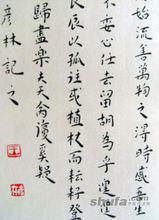 始流善萬物之得時感吾生
不委心任去留胡為乎遑遑
良辰以孤往或植杖而耘耔登
歸盡樂夫天命復奚疑
彦林記之